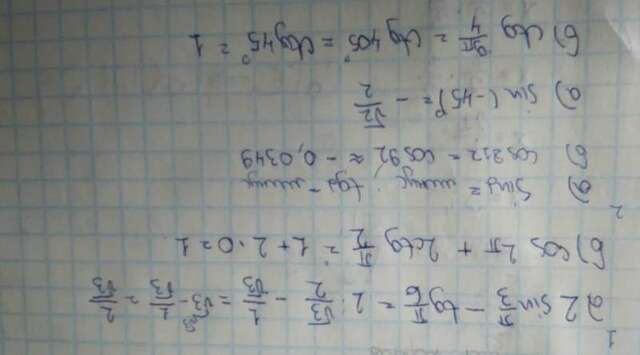 1
а) 2 sin π/3 - tg π/6 = 2 · √3/2 - 1/√3 = √3 - 1/√3 = 2/√3
б) cos 2π + 2ctg π/2 = 1 + 2 · 0 = 1
2
а) sinα = минус, tgα - минус
б) cos 212 = cos 92 ≈ - 0,0349
а) sin(-45)° = - √2/2
б) ctg 9π/4 = ctg 405° = ctg 45° = 1